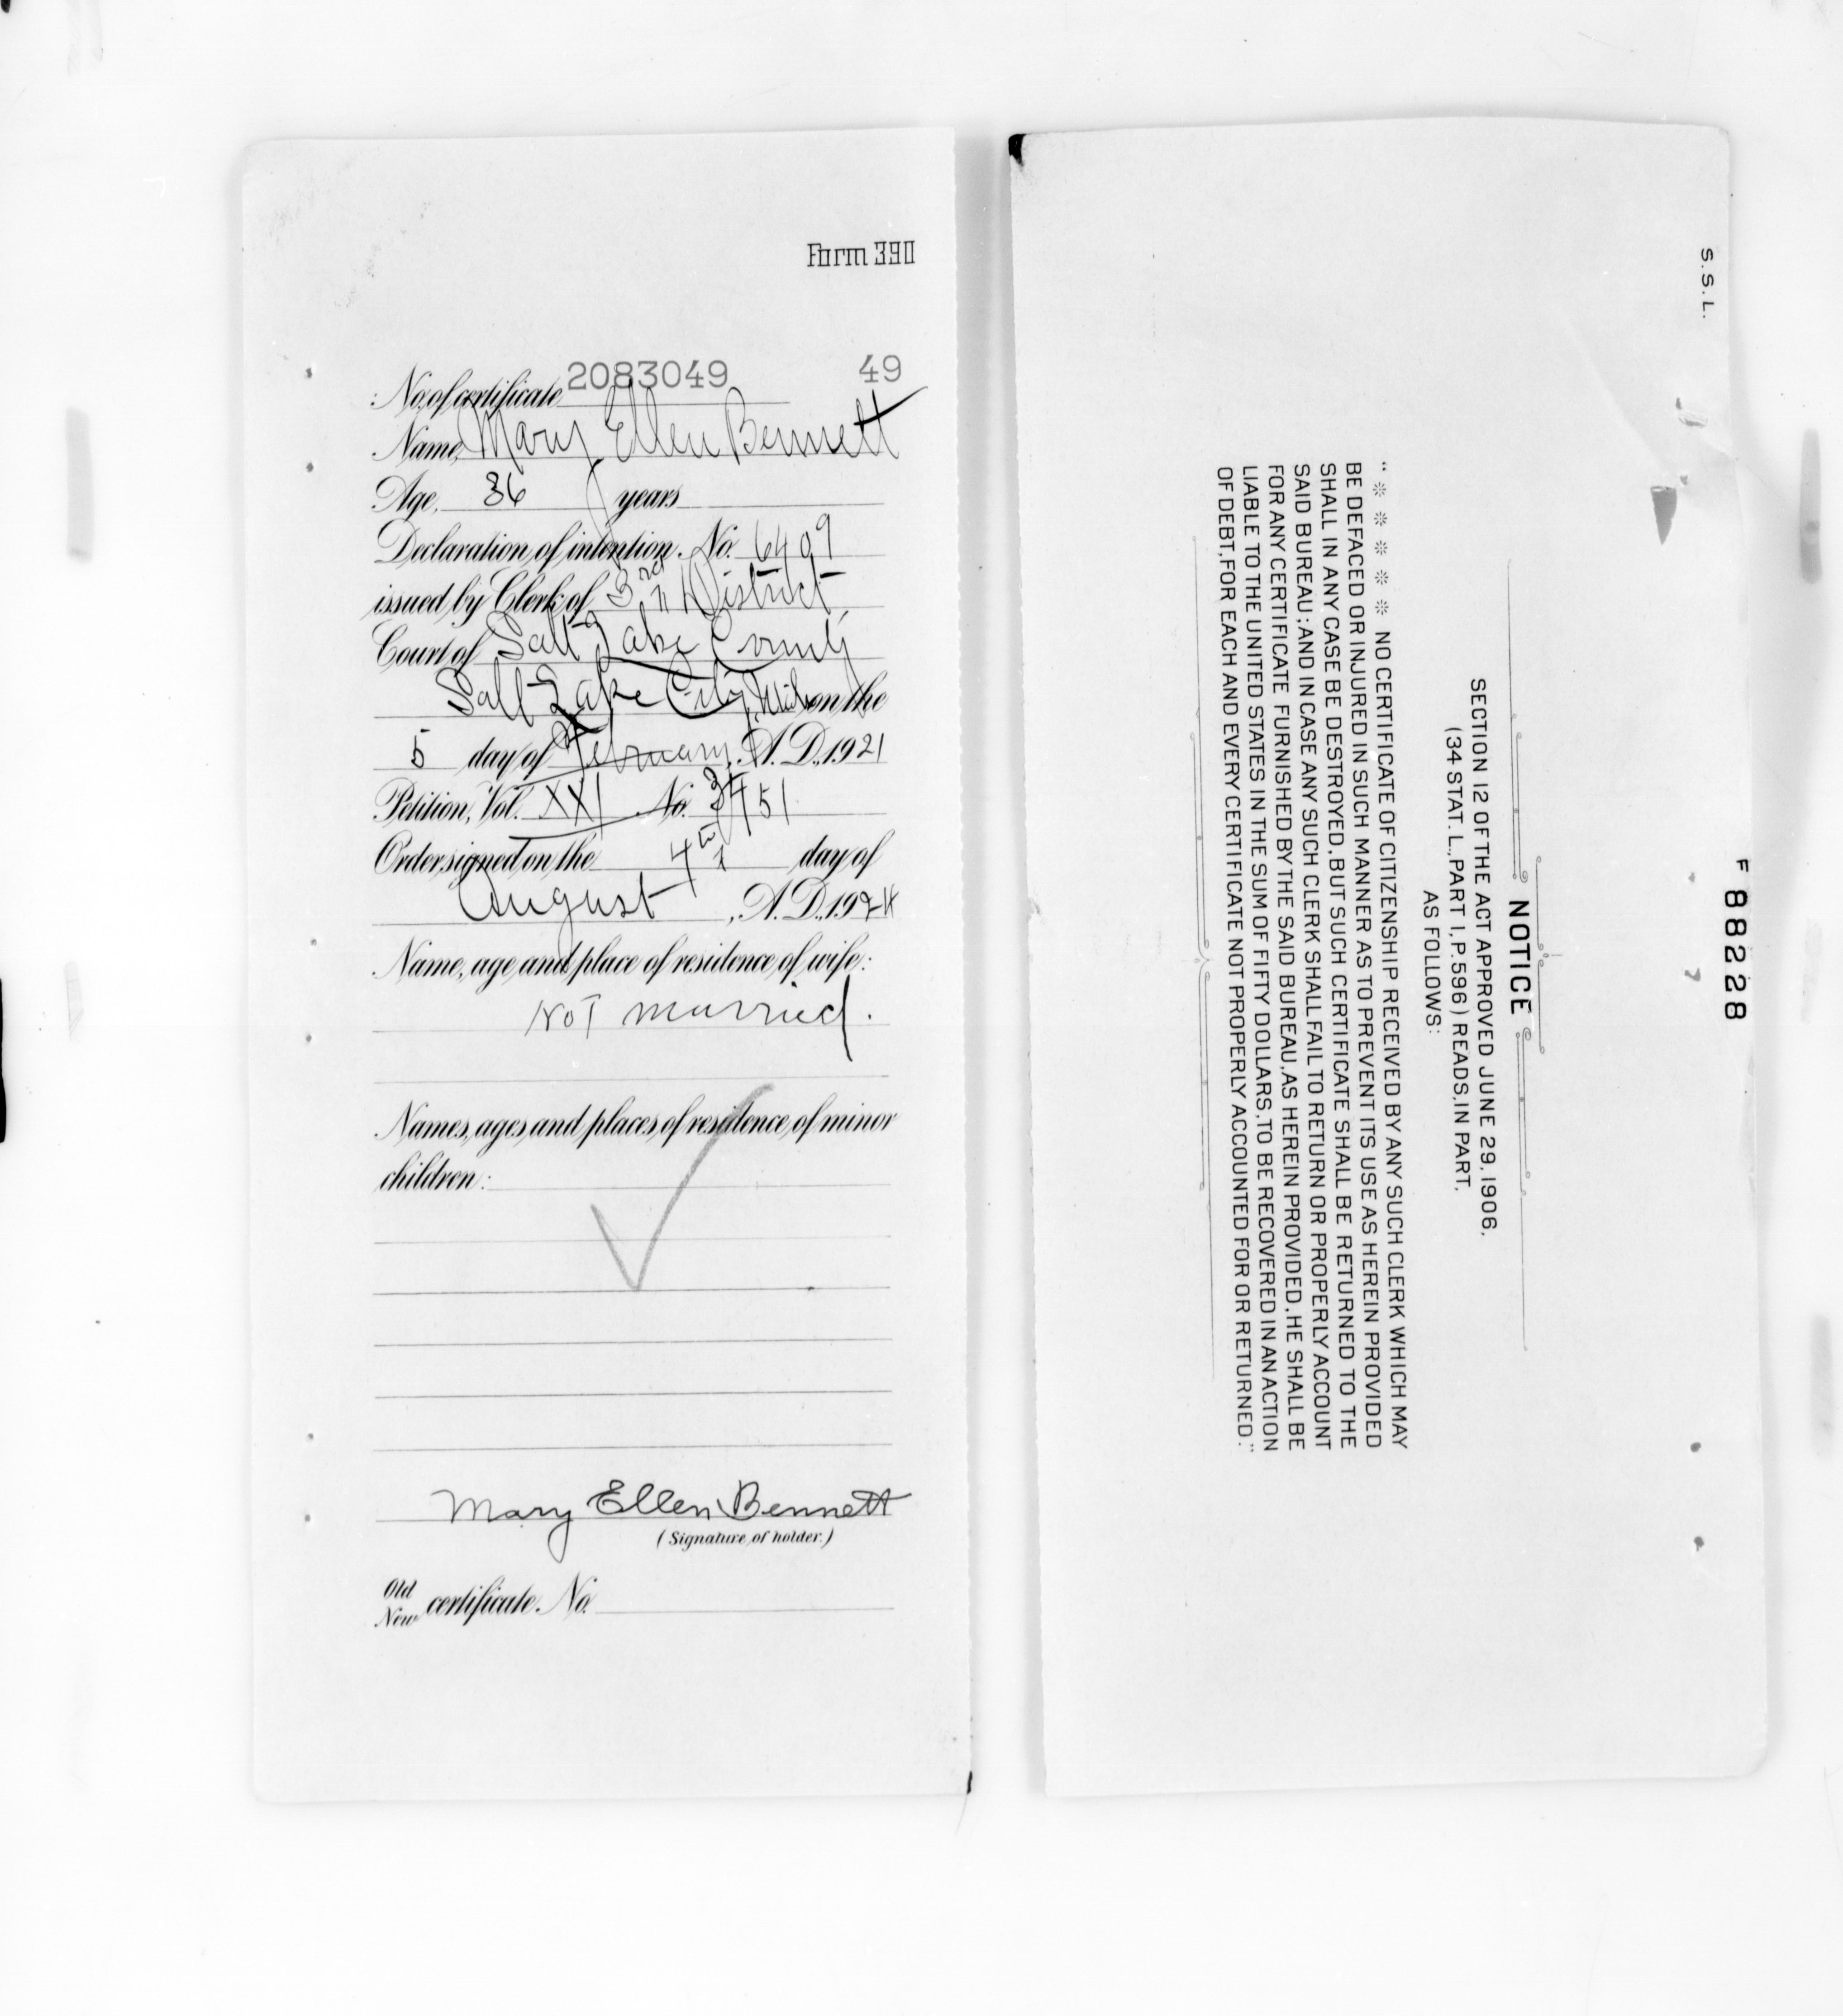 Form 390
No. of certificate 2083049 49
Name Mary Ellen Bennett
Age, 36 years
Declaration of intention No. 6409
issued by Clerk of 3rd District
Court of Salt Lake County
Salt Lake City, Utah on the
5 day of February, A. D., 1921
Petition, Vol. XXI No. 3451
Order signed on the 4th day of
August, A. D., 1924
Name, age and place of residence of wife:
Not married.
Names, ages and places of residence of minor
children:
Mary Ellen Bennett
(Signature of holder.)
Old
New certificate No.
S. S. L.
F 88228
NOTICE
SECTION 12 OF THE ACT APPROVED JUNE 29, 1906,
(34 STAT. L., PART I, P. 596) READS, IN PART,
AS FOLLOWS:
" ※ ※ ※ ※ ※ NO CERTIFICATE OF CITIZENSHIP RECEIVED BY ANY SUCH CLERK WHICH MAY
BE DEFACED OR INJURED IN SUCH MANNER AS TO PREVENT ITS USE AS HEREIN PROVIDED
SHALL IN ANY CASE BE DESTROYED, BUT SUCH CERTIFICATE SHALL BE RETURNED TO THE
SAID BUREAU; AND IN CASE ANY SUCH CLERK SHALL FAIL TO RETURN OR PROPERLY ACCOUNT
FOR ANY CERTIFICATE FURNISHED BY THE SAID BUREAU, AS HEREIN PROVIDED, HE SHALL BE
LIABLE TO THE UNITED STATES IN THE SUM OF FIFTY DOLLARS, TO BE RECOVERED IN AN ACTION
OF DEBT, FOR EACH AND EVERY CERTIFICATE NOT PROPERLY ACCOUNTED FOR OR RETURNED."